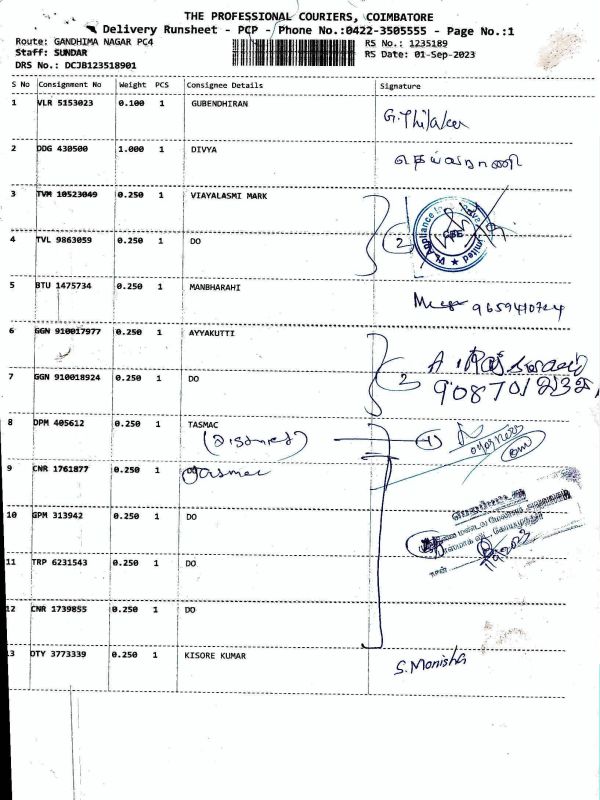 THE PROFESSIONAL COURIERS, COIMBATORE
Delivery Runsheet - PCP - Phone No.:0422-3505555 - Page No.:1
Route: GANDHIMA NAGAR PC4
RS No.: 1235189
Staff: SUNDAR
RS Date: 01-Sep-2023
DRS No.: DCJB123518901
S No Consignment No Weight PCS Consignee Details Signature
1 VLR 5153023 0.100 1 GUBENDHIRAN G.Thilaker
2 DDG 430500 1.000 1 DIVYA தெய்வநாணி
3 TVM 10523049 0.250 1 VIAYALASMI MARK
2
4 TVL 9863059 0.250 1 DO
5 BTU 1475734 0.250 1 MANBHARAHI
6 GGN 910017977 0.250 1 AYYAKUTTI
2
7 GGN 910018924 0.250 1 DO
8 DPM 405612 0.250 1 TASMAC
9 CNR 1761877 0.250 1 Tasmac
10 GPM 313942 0.250 1 DO
11 TRP 6231543 0.250 1 DO
12 CNR 1739855 0.250 1 DO
13 OTY 3773339 0.250 1 KISORE KUMAR S.Monisha